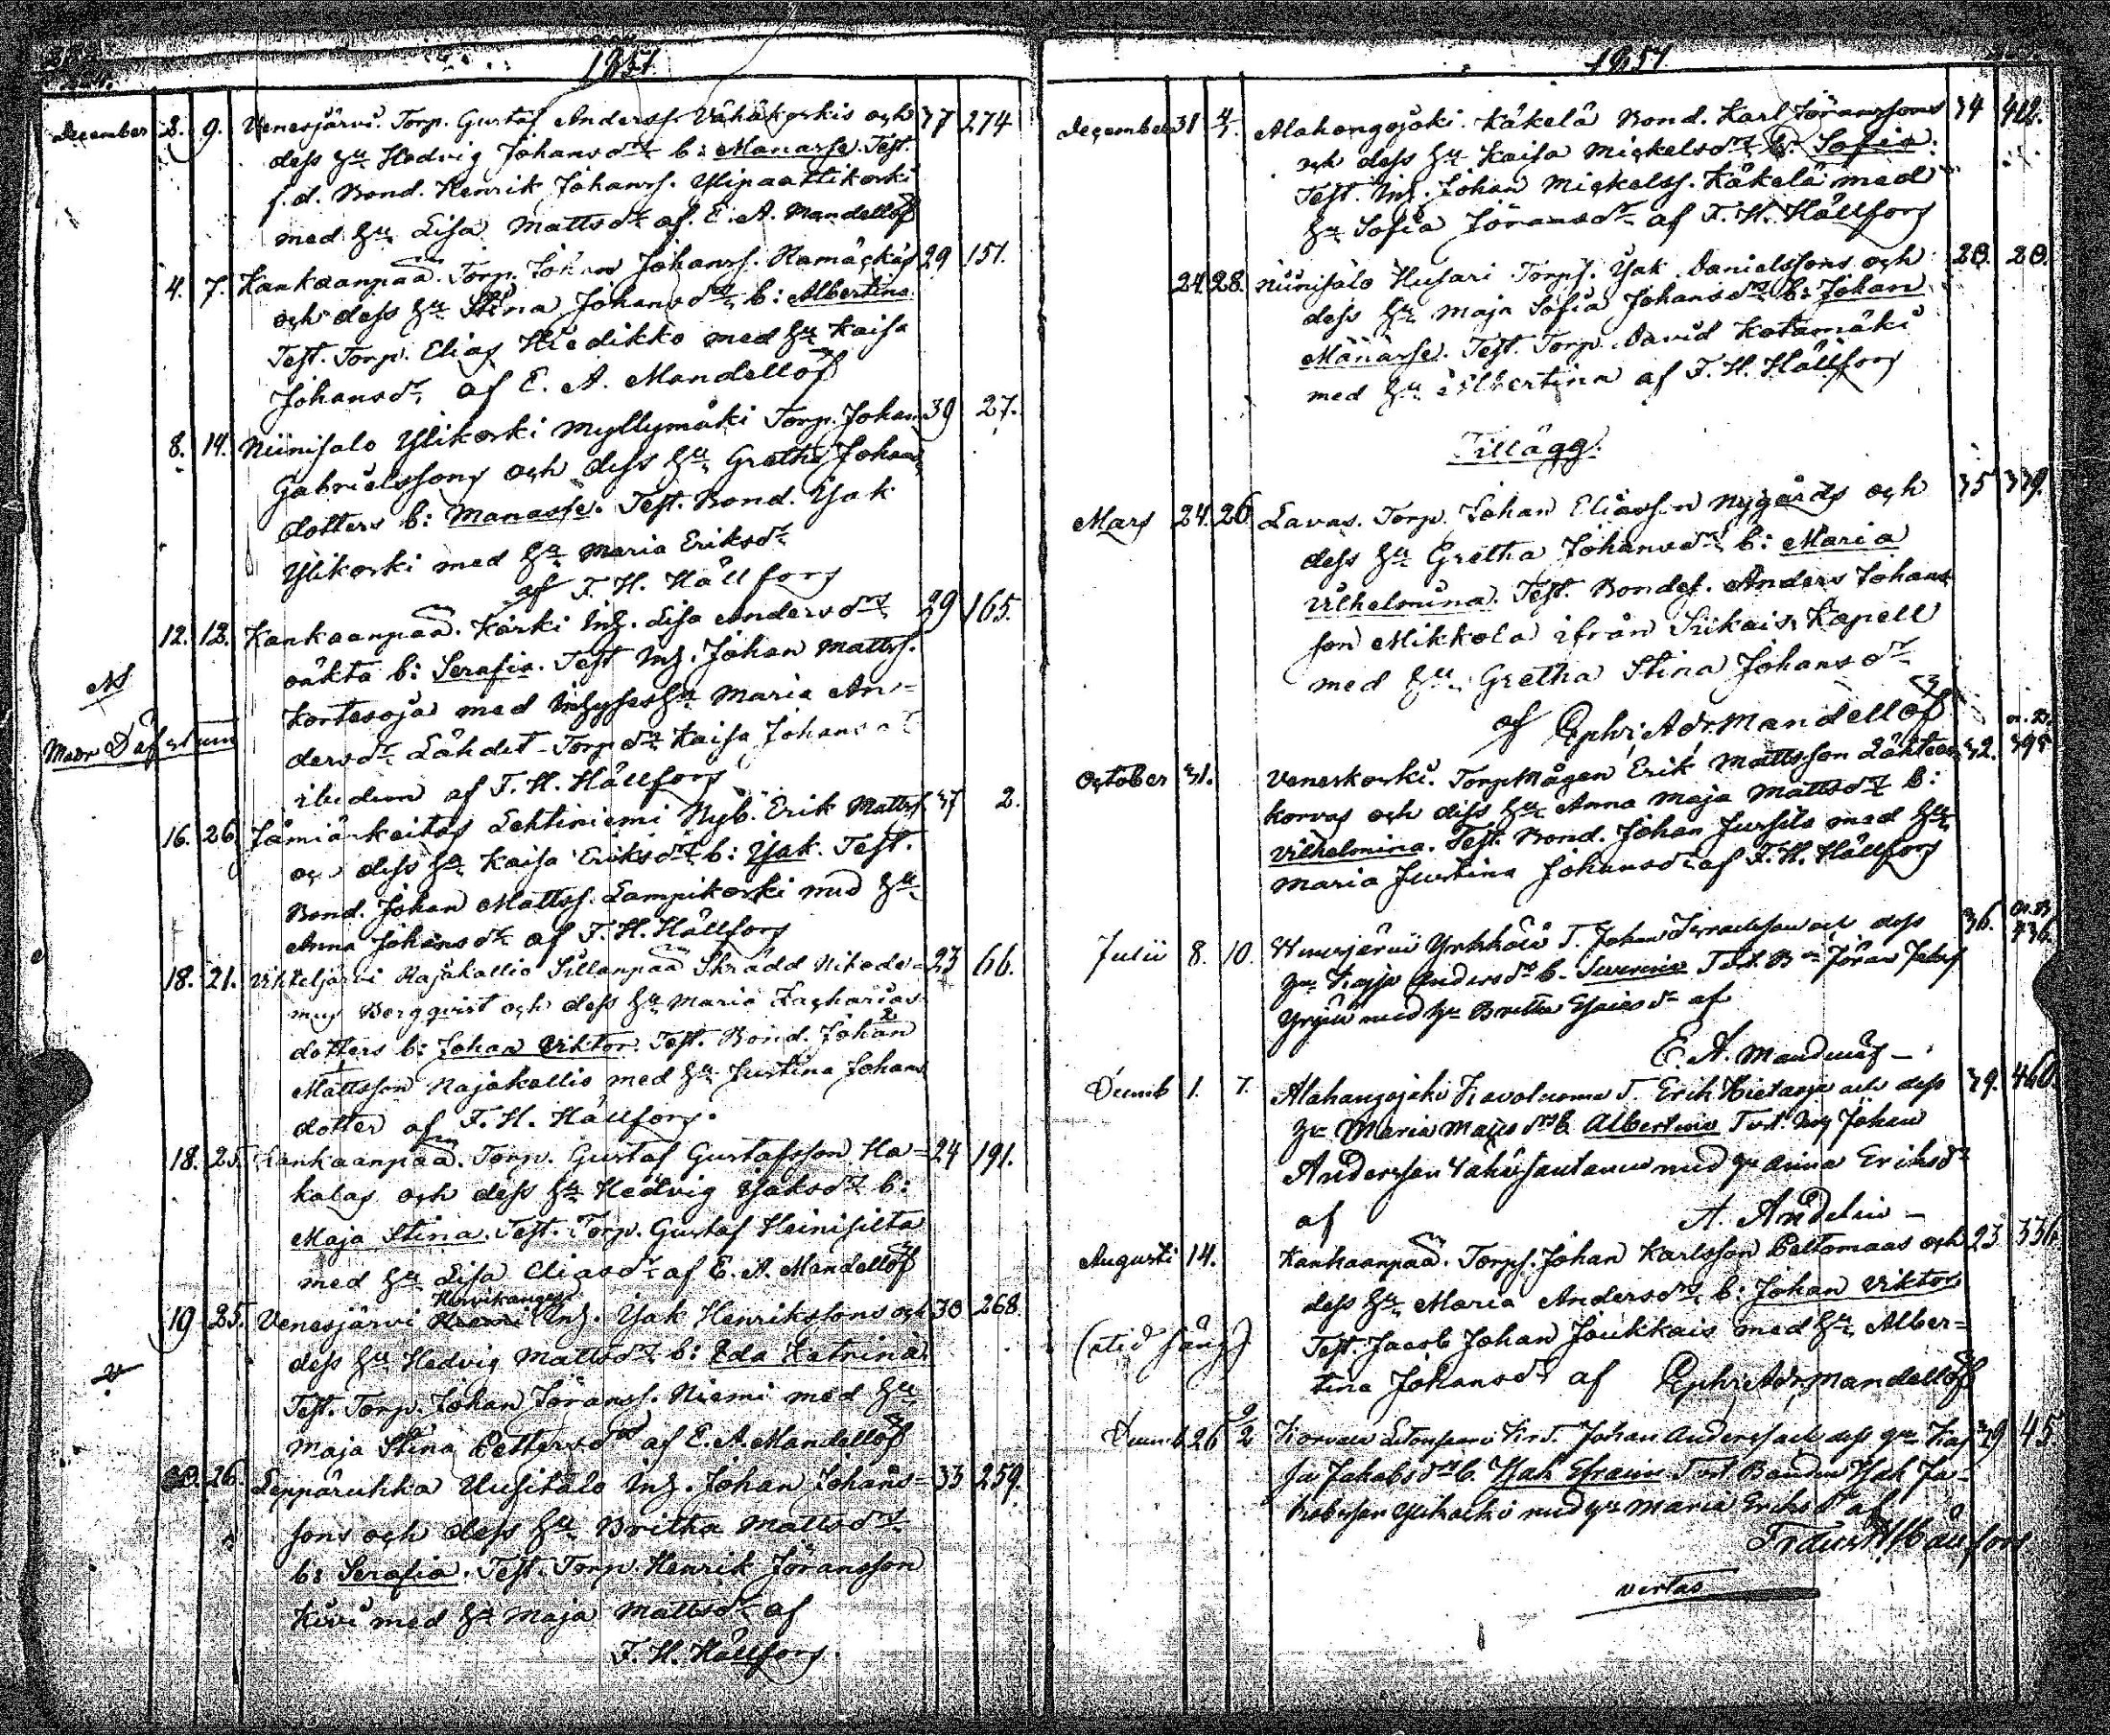 1857
December 2. 9. Venesjärvi. Torp. Gustaf Anderss. Vähäkoskis och 37 274
dess hu Hedvig Johansdrs b: Manasse. Test.
f.d. Bond. Henrik Johanss. Ylipaattikoski
med hu Lisa Mattsdr af. E. A. Mandellöf
4. 7. Kankaanpää. Torp. Johan Johanss. Hamäckäs 29 151.
och dess hu Stina Johansdrs b: Albertina
Test. Torp. Elias Hiedikko med hu Kaisa
Johansdr, af E. A. Mandellöf
8. 14. Niinisalo Ylikoski Myllymäki Torp. Johan 39 27.
Gabrielssons och dess hu Gretha Johans
dotters b: Manasse. Test. Bond. Isak
Ylikoski med hu Maria Eriksdr
af F. H. Hällfors
12. 12. Kankaanpää. Karki Inh. Lisa Andersdrs 29 165.
oäkta b: Serafia. Test Inh. Johan Mattss.
Kortesoja med Inhyseshu Maria An=
dersdr Lähdet Torp.dr Kaisa Johansdr
ibidem af F. H. Hällfors
16. 26. Jämiänkeitas Lehtiniemi Nyb. Erik Mattss 37 2.
och dess hu Kaisa Eriksdrs b: Isak. Test.
Bond. Johan Mattss. Lampikoski med hu
Anna Johansdr af F. H. Hällfors
18. 21. Vihteljärvi Rajakallio Sillanpää Skrädd Nikode= 23 66.
mus Bergqvist och dess hu Maria Zacharias
dotters b: Johan Viktor. Test. Bond. Johan
Mattsson Rajakallio med hu Justina Johans
dotter af F. H. Hällfors.
18. 25. Kankaanpää. Torp. Gustaf Gustafsson Ha= 24 191.
kalas och dess hu Hedvig Isaksdrs b:
Maja Stina. Test. Torp. Gustaf Heinisilta
med hu Lisa Eliasdr af E. A. Mandellöf
19 25. Venesjärvi Inh. Isak Henrikssons och 30 268.
dess hu Hedvig Mattsdrs b: Eda Katrina
Test. Torp. Johan Jöranss. Niemi med hu
Maja Stina Pettersdr af E. A. Mandellöf
26. Leppäruhka Uusitalo Inh. Johan Johans= 33 259.
sons och dess hu Britha Mattsdrs
b: Serafia. Test. Torp. Henrik Jöransson
Kivi med hu Maja Mattsdr af
F. H. Hällfors.
1857
December 31 4/1. Alahongojoki. Käkelä Bond. Karl Jöranssons 34 412.
och dess hu Kaisa Mickelsdrs b: Sofia.
Test. Inh. Johan Mickelss. Käkelä med
hu Sofia Jöransdr af F. H. Hällfors
24. 28. Niinisalo Husari Torps. Isak Danielssons och 28. 20.
dess hu Maja Sofia Johansdrs b: Johan
Manasse. Test. Torp. David Katamäki
med hu Albertina af F. H. Hällfors
Tillägg.
Mars 24. 26. Lavas. Torp. Johan Eliasson Nygårds och 35 339.
dess hu Gretha Johansdrs b: Maria
Vilhelmina. Test. Bondes. Anders Johans
son Mikkola ifrån Siikais Kapell
med hu Gretha Stina Johansdr
af Ephr. Adr. Mandellöf
October 31. Veneskoski. Torpmågen Erik Mattsson Lähteen 32. 395
korvas och dess hu Anna Maja Mattsdrs b:
Vilhelmina. Test. Bond. Johan Jussila med hu
Maria Justina Johansdr af F. H. Hällfors
Julii 8. 10. Venesjärvi T. Johan och dess 36.
hu Kajsa Andersdrs b. Severina Test. Bn Jöran
med hu Britta Esaiedr af
E. A. Mandellöf
Decemb 1. 7. Alahongojoki T. Erik Hietaoja och dess 39. 460.
hu Maria b. Albertina Test. Inh Johan
Andersson med hu Anna Eriksdr
af A. Andelin
Augusti 14. Kankaanpää. Torps. Johan Karlsson Peltomaas och 23 336.
dess hu Maria Andersdrs b: Johan Viktor
Test. Jacob Johan Joukkais med hu Alber=
tina Johansdr af Ephr. Adr. Mandellöf
Decemb 26 Johan Anderss och dess hu Kaj 29 45
sa Jakobsdrs b. Isak Efraim Test Bonden Isak Ja=
kobsson Ylikoski med hu Maria Eriksdr af
Hällfors
vertas